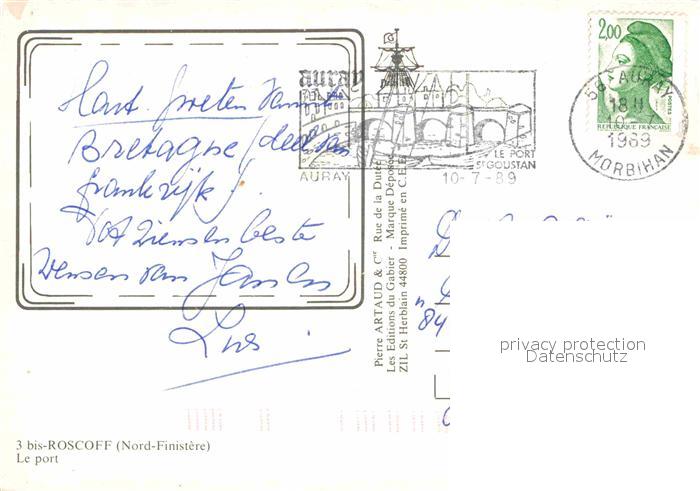 Hart. groeten van
Bretagne / deel van
frankrijk /
tot ziens en beste
wensen van Jan en
auray
AURAY
LE PORT
ST GOUSTAN
10-7-89
2,00
POSTES
REPUBLIQUE FRANÇAISE
56 AURAY
18 H
10-
1989
MORBIHAN
Pierre ARTAUD & Cie Rue de la Dutée
Les Editions du Gabier - Marque Déposée
ZIL St Herblain 44800 Imprimé en C.E.E.
84
privacy protection
Datenschutz
3 bis-ROSCOFF (Nord-Finistère)
Le port